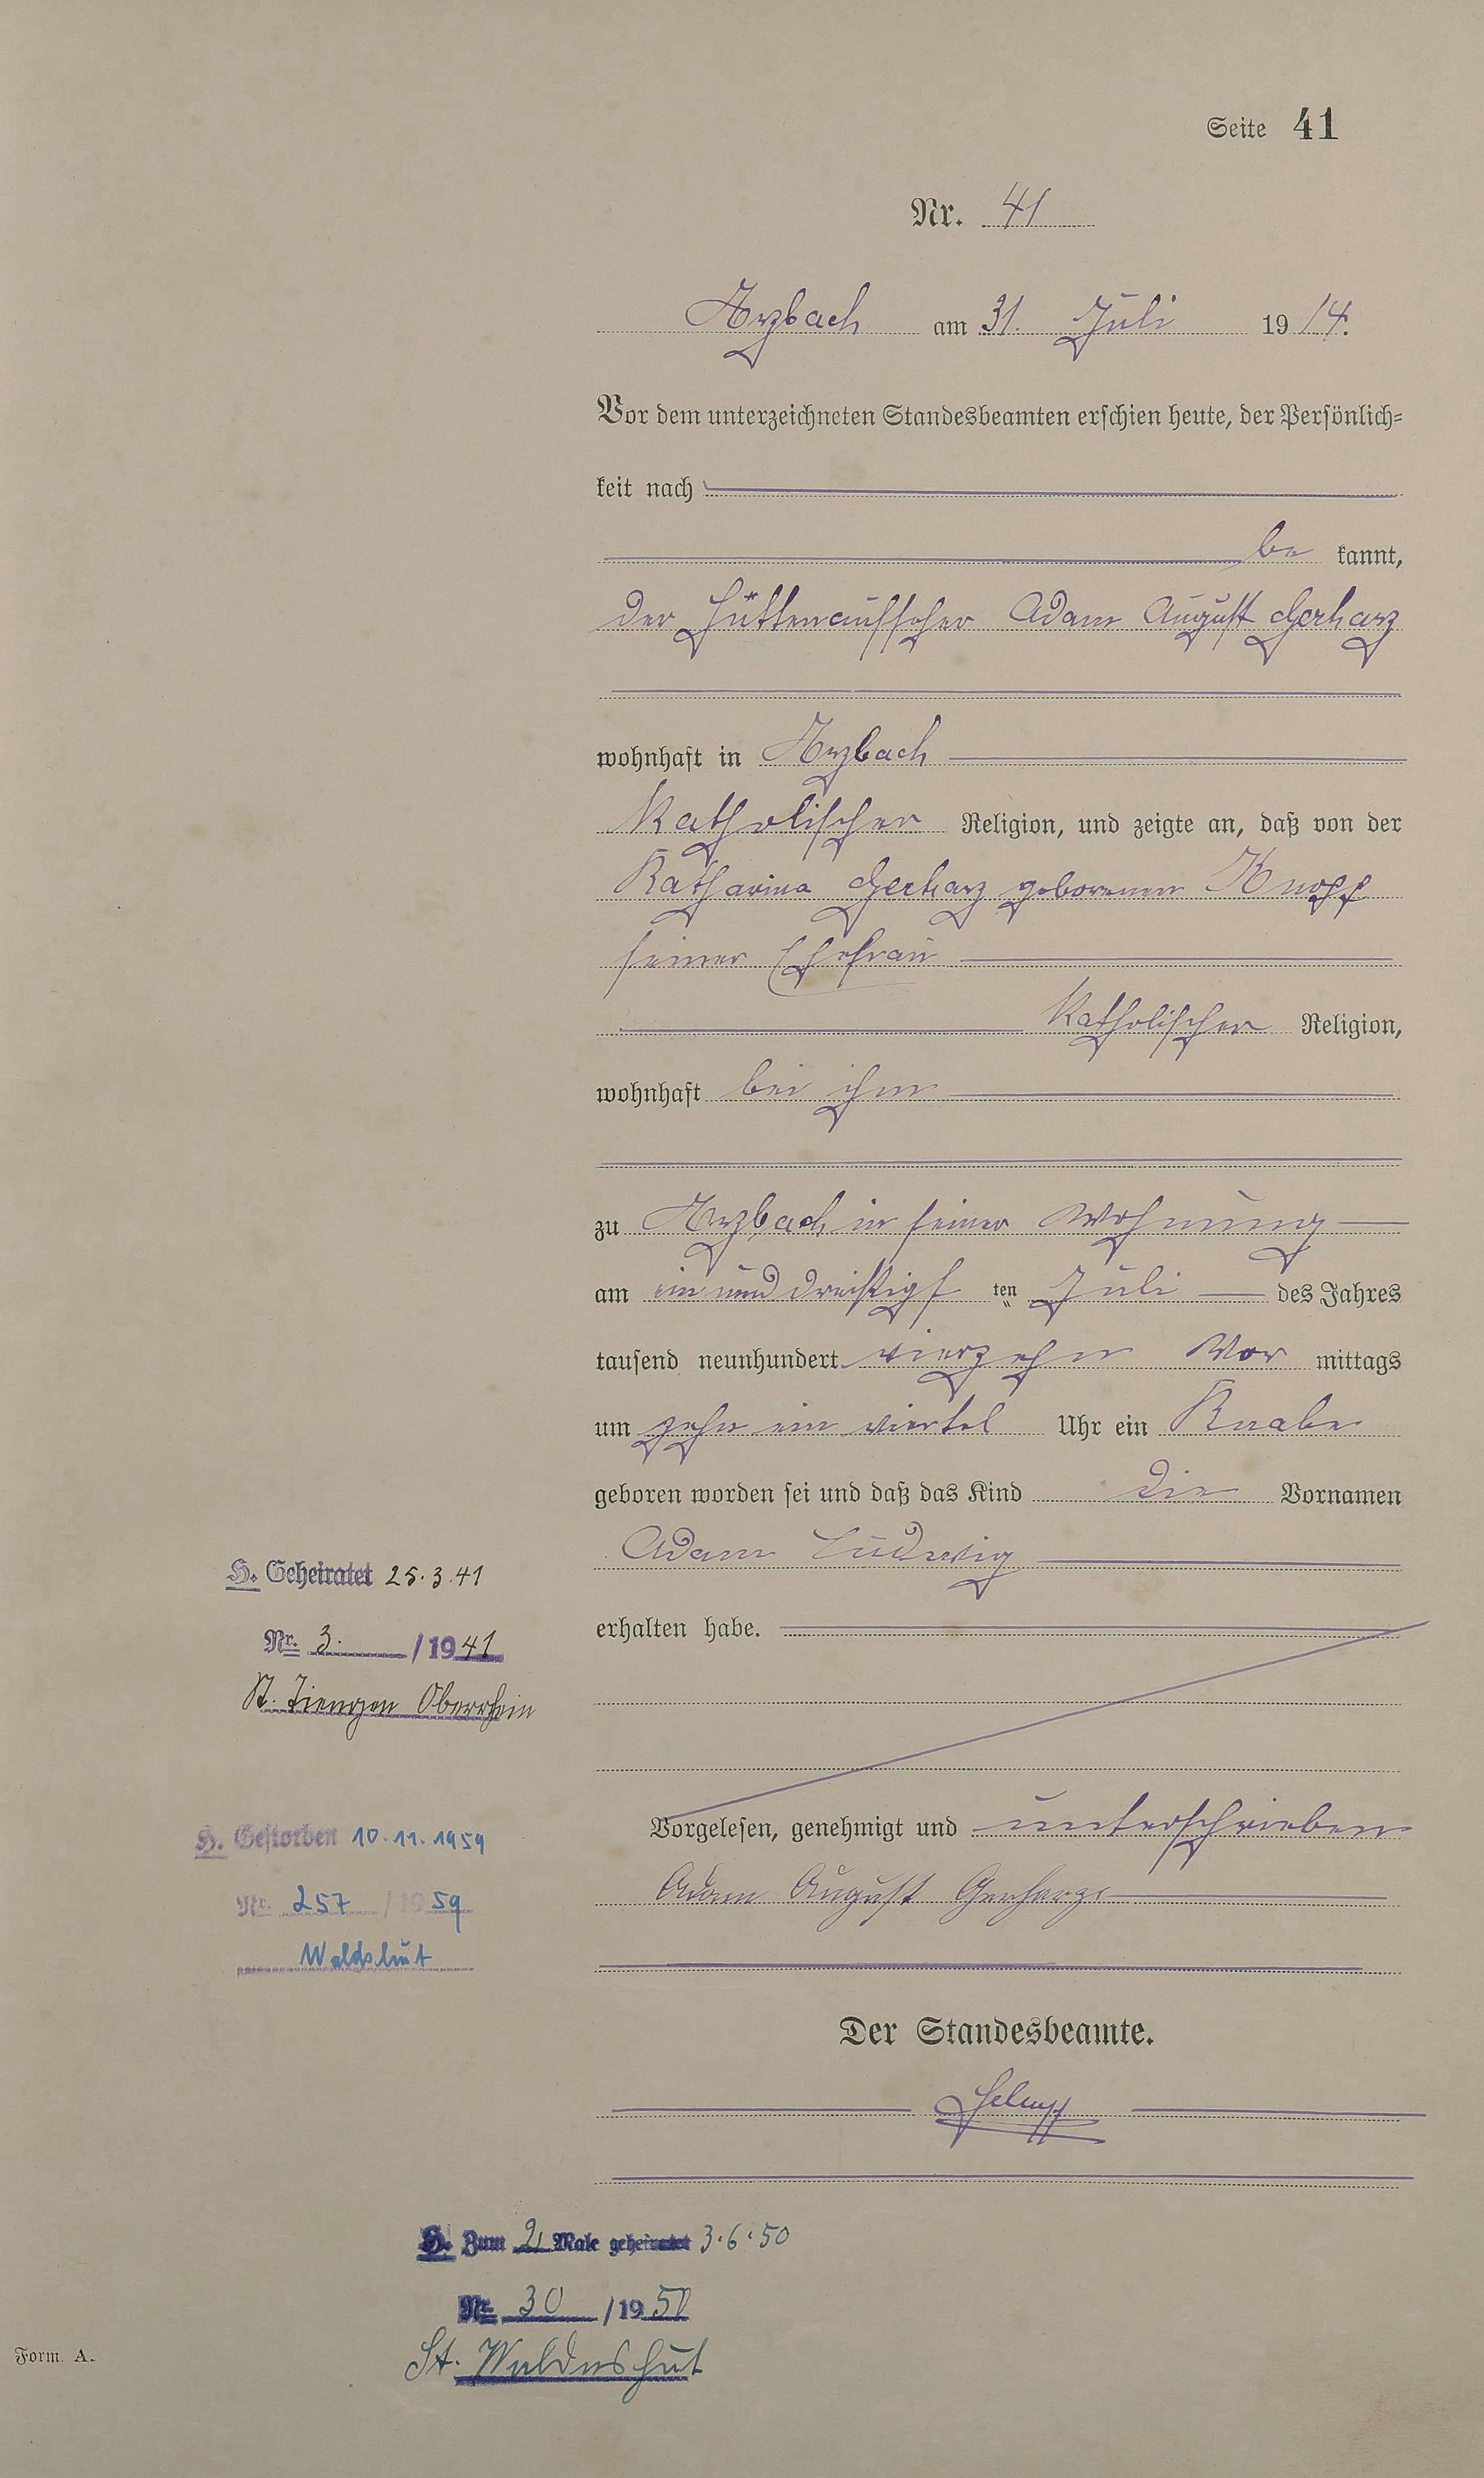 Seite 41
Nr. 41
Arzbach am 31. Juli 1914.
Vor dem unterzeichneten Standesbeamten erschien heute, der Persönlich=
keit nach
be kannt,
der Hüttenaufseher Adam August Gerharz
wohnhaft in Arzbach
Katholischer Religion, und zeigte an, daß von der
Katharina Gerharz geborenen Knopp
seiner Ehefrau
Katholischer Religion,
wohnhaft bei ihm
zu Arzbach in seiner Wohnung
am ein und dreißigsten Juli des Jahres
tausend neunhundert vierzehn Vor mittags
um zehn ein viertel Uhr ein Knabe
geboren worden sei und daß das Kind die Vornamen
Adam Ludwig
erhalten habe.
Vorgelesen, genehmigt und unterschrieben
Adam August Gerharz
Der Standesbeamte.
H. Geheiratet 25.3.41
Nr. 3. /1941
St. Tiengen Oberrhein
H. Gestorben 10.11.1959
Nr. 257 /1959
Waldshut
H. Zum 2. Male geheiratet 3.6.50
Nr. 30 /1950
St. Waldshut
Form. A.